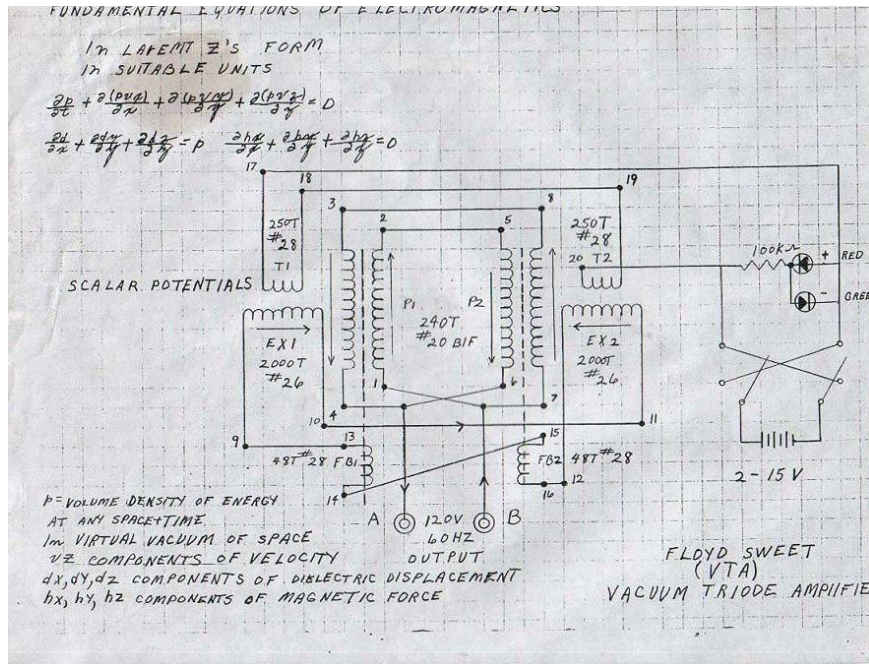 FUNDAMENTAL EQUATIONS OF ELECTROMAGNETICS
In LAREMT Z'S FORM
In SUITABLE UNITS
∂p/∂t + ∂(pvx)/∂x + ∂(pvy)/∂y + ∂(pvz)/∂z = 0
∂d/∂x + ∂dy/∂y + ∂dz/∂z = p ∂hx/∂x + ∂hx/∂y + ∂hz/∂z = 0
17
18
19
3
8
2
5
250T
#28
T1
250T
#28
20 T2
100KΩ
+
RED
-
GREE
SCALAR POTENTIALS
P1
P2
240T
#20 BIF
EX1
2000T
#26
EX2
2000T
#26
1
6
4
7
10
11
9
13
15
48T #28 FB1
FB2 48T #28
12
14
16
2-15V
A
120V
60HZ
OUTPUT
B
P = VOLUME DENSITY OF ENERGY
AT ANY SPACE+TIME
In VIRTUAL VACUUM OF SPACE
VZ COMPONENTS OF VELOCITY
dX, dY, dZ COMPONENTS OF DIELECTRIC DISPLACEMENT
hX, hY, hZ COMPONENTS OF MAGNETIC FORCE
FLOYD SWEET
(VTA)
VACUUM TRIODE AMPIIFIE